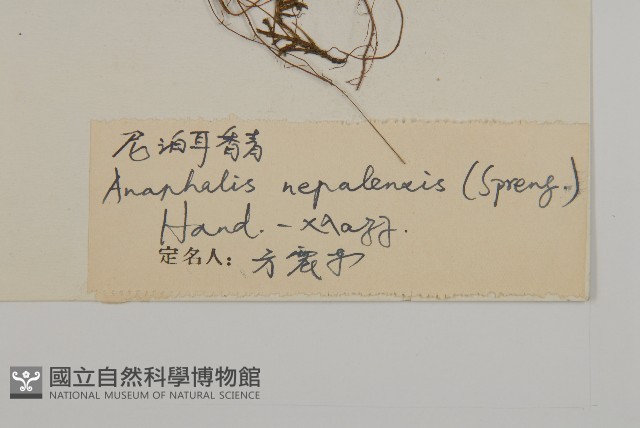 尼泊耳香青
Anaphalis nepalensis (Spreng.)
Hand. -
定名人：方震
國立自然科學博物館
NATIONAL MUSEUM OF NATURAL SCIENCE